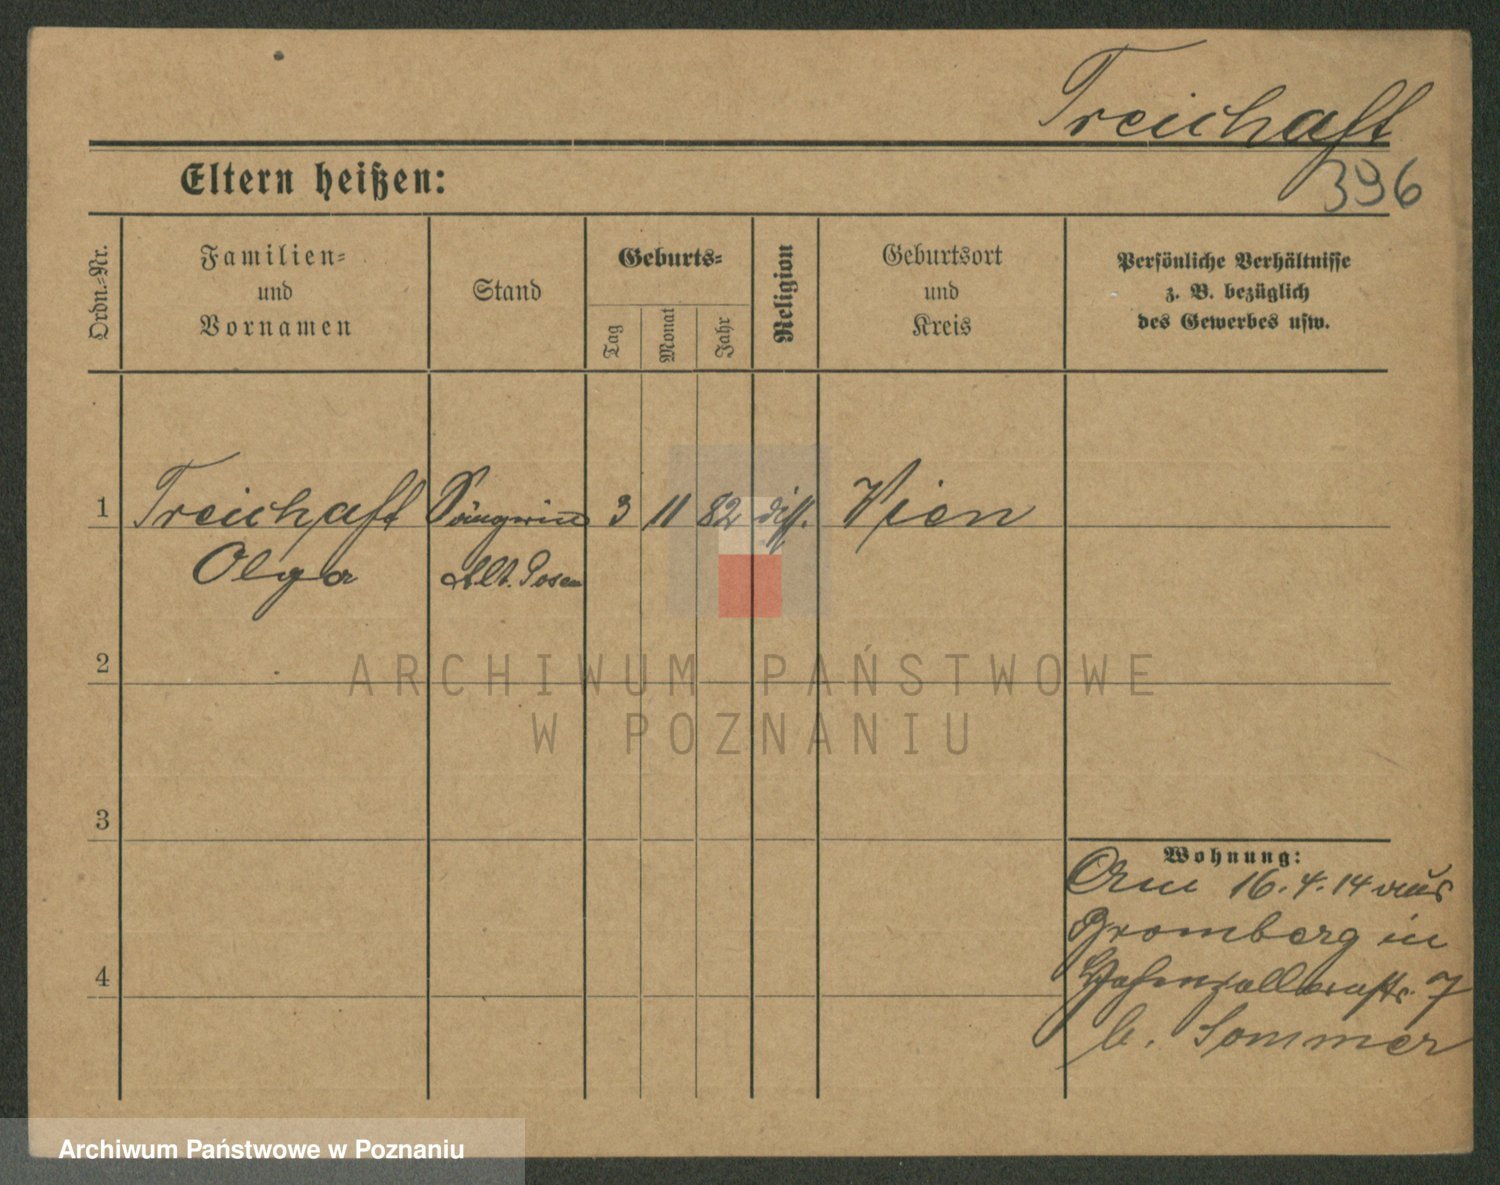 Treichaft
396
Eltern heißen:
Ordn.-Nr.
Familien-
und
Vornamen
Stand
Geburts-
Tag
Monat
Jahr
Religion
Geburtsort
und
Kreis
Persönliche Verhältnisse
z. B. bezüglich
des Gewerbes usw.
1 Treichaft Sängerin 3 11 82 diss. Wien
Olga Posen
2
3
4
Wohnung:
Am 16.4.14 aus
Bromberg in
7
b. Sommer
ARCHIWUM PAŃSTWOWE
W POZNANIU
Archiwum Państwowe w Poznaniu